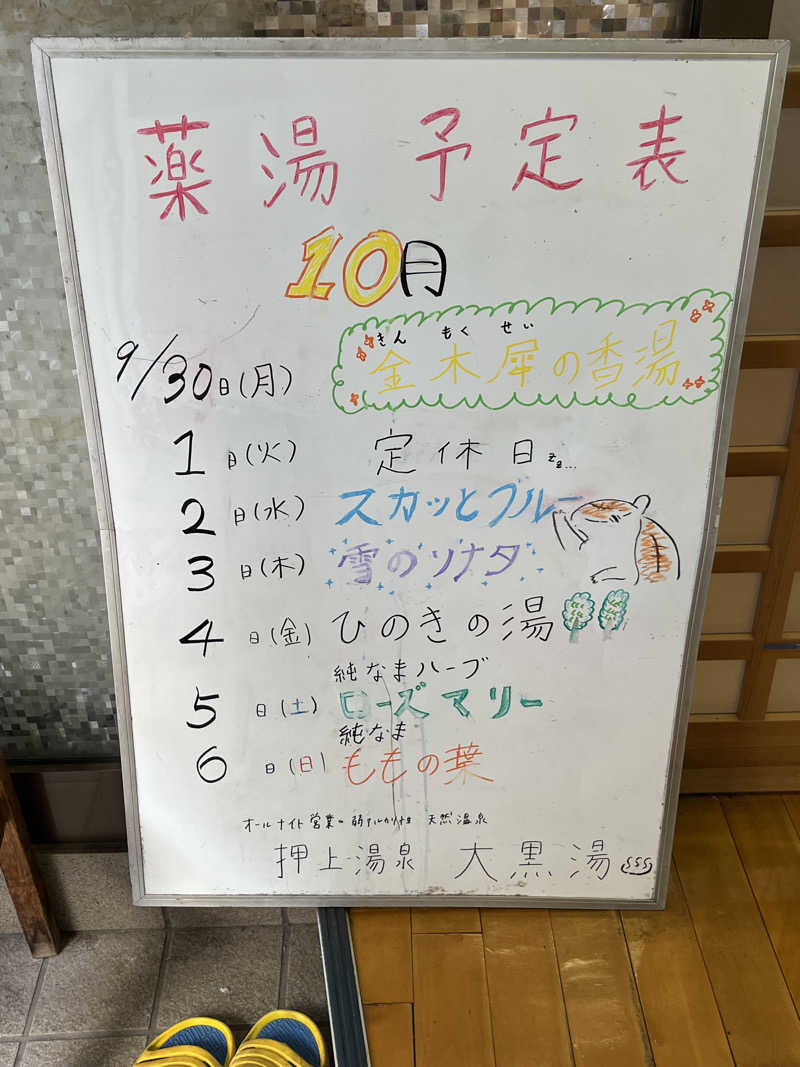 薬湯 予定表
10月
きん もく せい
9/30日(月) 金木犀の香湯
1日(火) 定休日zz...
2日(水) スカッとブルー
3日(木) 雪のソナタ
4日(金) ひのきの湯
純なまハーブ
5日(土) ローズマリー
純なま
6日(日) ももの葉
オールナイト営業 弱アルカリ性 天然温泉
押上温泉 大黒湯